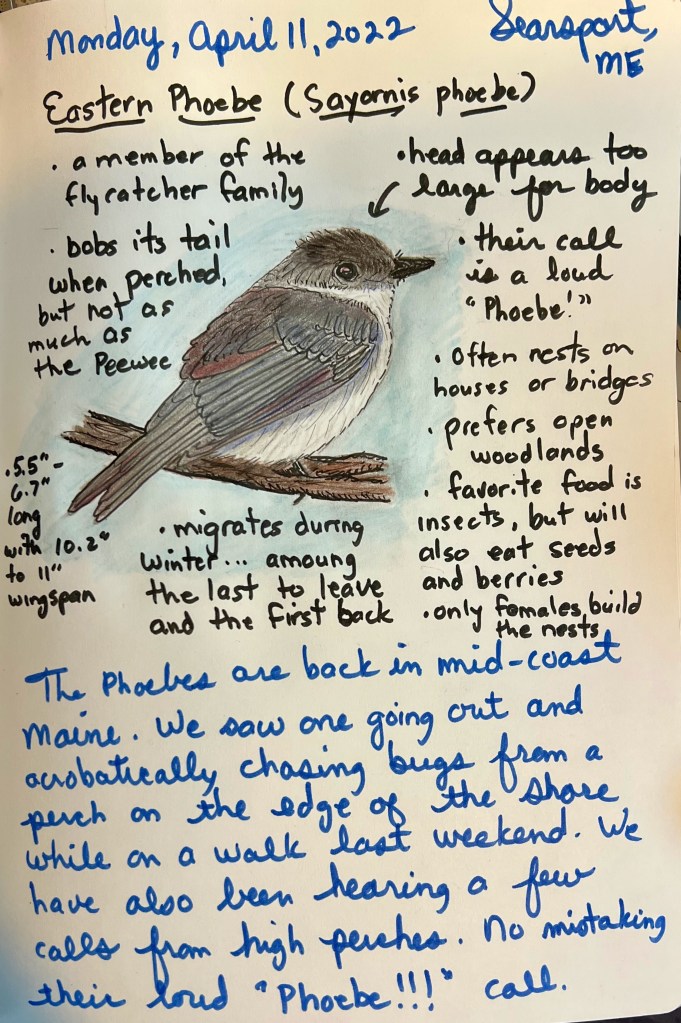 Monday, April 11, 2022
Searsport,
ME
Eastern Phoebe (Sayornis phoebe)
• a member of the
flycatcher family
• bobs its tail
when perched,
but not as
much as
the Peewee
• 5.5" -
6.7"
long
with 10.2"
to 11"
wingspan
• migrates during
winter... amoung
the last to leave
and the first back
• head appears too
large for body
• their call
is a loud
"Phoebe!"
• often nests on
houses or bridges
• prefers open
woodlands
• favorite food is
insects, but will
also eat seeds
and berries
• only females build
the nests
The Phoebes are back in mid-coast
Maine. We saw one going out and
acrobatically chasing bugs from a
perch on the edge of the shore
while on a walk last weekend. We
have also been hearing a few
calls from high perches. No mistaking
their loud "Phoebe!!!" call.